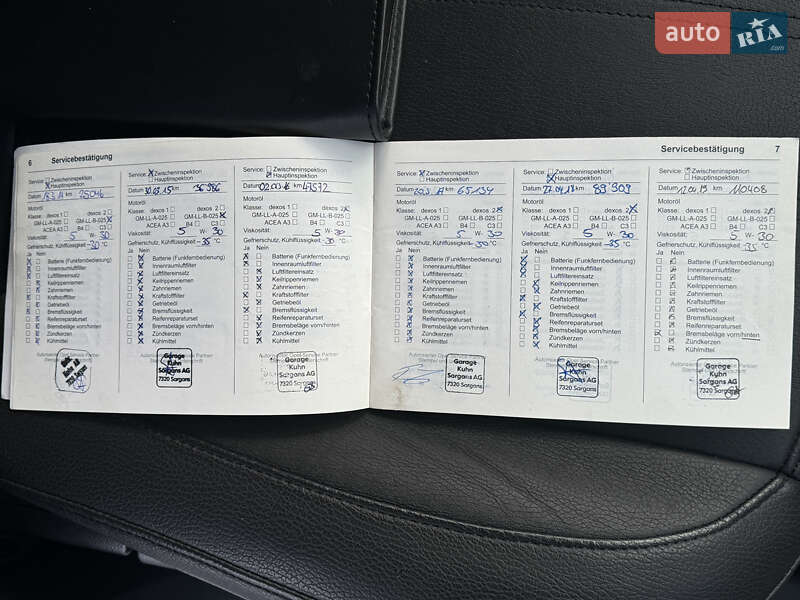 auto RIA .com
6 Servicebestätigung
Service: Zwischeninspektion
Hauptinspektion
Datum km 25046
Motoröl
Klasse: dexos 1 dexos 2
GM-LL-A-025 GM-LL-B-025
ACEA A3 B4 C3
Viskosität: 5 W- 30
Gefrierschutz, Kühlflüssigkeit -30 °C
Ja Nein
Batterie (Funkfernbedienung)
Innenraumluftfilter
Luftfiltereinsatz
Keilrippenriemen
Zahnriemen
Kraftstofffilter
Getriebeöl
Bremsflüssigkeit
Reifenreparaturset
Bremsbeläge vorn/hinten
Zündkerzen
Kühlmittel
Service: Zwischeninspektion
Hauptinspektion
Datum 30.03.15 km 36986
Motoröl
Klasse: dexos 1 dexos 2
GM-LL-A-025 GM-LL-B-025
ACEA A3 B4 C3
Viskosität: 5 W- 30
Gefrierschutz, Kühlflüssigkeit -35 °C
Ja Nein
Batterie (Funkfernbedienung)
Innenraumluftfilter
Luftfiltereinsatz
Keilrippenriemen
Zahnriemen
Kraftstofffilter
Getriebeöl
Bremsflüssigkeit
Reifenreparaturset
Bremsbeläge vorn/hinten
Zündkerzen
Kühlmittel
Garage
Kuhn
Sargans AG
7320 Sargans
Service: Zwischeninspektion
Hauptinspektion
Datum km 47572
Motoröl
Klasse: dexos 1 dexos 2
GM-LL-A-025 GM-LL-B-025
ACEA A3 B4 C3
Viskosität: 5 W- 30
Gefrierschutz, Kühlflüssigkeit -30 °C
Ja Nein
Batterie (Funkfernbedienung)
Innenraumluftfilter
Luftfiltereinsatz
Keilrippenriemen
Zahnriemen
Kraftstofffilter
Getriebeöl
Bremsflüssigkeit
Reifenreparaturset
Bremsbeläge vorn/hinten
Zündkerzen
Kühlmittel
Garage
Kuhn
Sargans AG
7320 Sargans
Servicebestätigung 7
Service: Zwischeninspektion
Hauptinspektion
Datum km 65134
Motoröl
Klasse: dexos 1 dexos 2
GM-LL-A-025 GM-LL-B-025
ACEA A3 B4 C3
Viskosität: 5 W- 30
Gefrierschutz, Kühlflüssigkeit -30 °C
Ja Nein
Batterie (Funkfernbedienung)
Innenraumluftfilter
Luftfiltereinsatz
Keilrippenriemen
Zahnriemen
Kraftstofffilter
Getriebeöl
Bremsflüssigkeit
Reifenreparaturset
Bremsbeläge vorn/hinten
Zündkerzen
Kühlmittel
Garage
Kuhn
Sargans AG
7320 Sargans
Service: Zwischeninspektion
Hauptinspektion
Datum 27.04.18 km 89'909
Motoröl
Klasse: dexos 1 dexos 2
GM-LL-A-025 GM-LL-B-025
ACEA A3 B4 C3
Viskosität: 5 W- 30
Gefrierschutz, Kühlflüssigkeit -35 °C
Ja Nein
Batterie (Funkfernbedienung)
Innenraumluftfilter
Luftfiltereinsatz
Keilrippenriemen
Zahnriemen
Kraftstofffilter
Getriebeöl
Bremsflüssigkeit
Reifenreparaturset
Bremsbeläge vorn/hinten
Zündkerzen
Kühlmittel
Garage
Kuhn
Sargans AG
7320 Sargans
Service: Zwischeninspektion
Hauptinspektion
Datum km 110408
Motoröl
Klasse: dexos 1 dexos 2
GM-LL-A-025 GM-LL-B-025
ACEA A3 B4 C3
Viskosität: 5 W- 30
Gefrierschutz, Kühlflüssigkeit -35 °C
Ja Nein
Batterie (Funkfernbedienung)
Innenraumluftfilter
Luftfiltereinsatz
Keilrippenriemen
Zahnriemen
Kraftstofffilter
Getriebeöl
Bremsflüssigkeit
Reifenreparaturset
Bremsbeläge vorn/hinten
Zündkerzen
Kühlmittel
Garage
Kuhn
Sargans AG
7320 Sargans